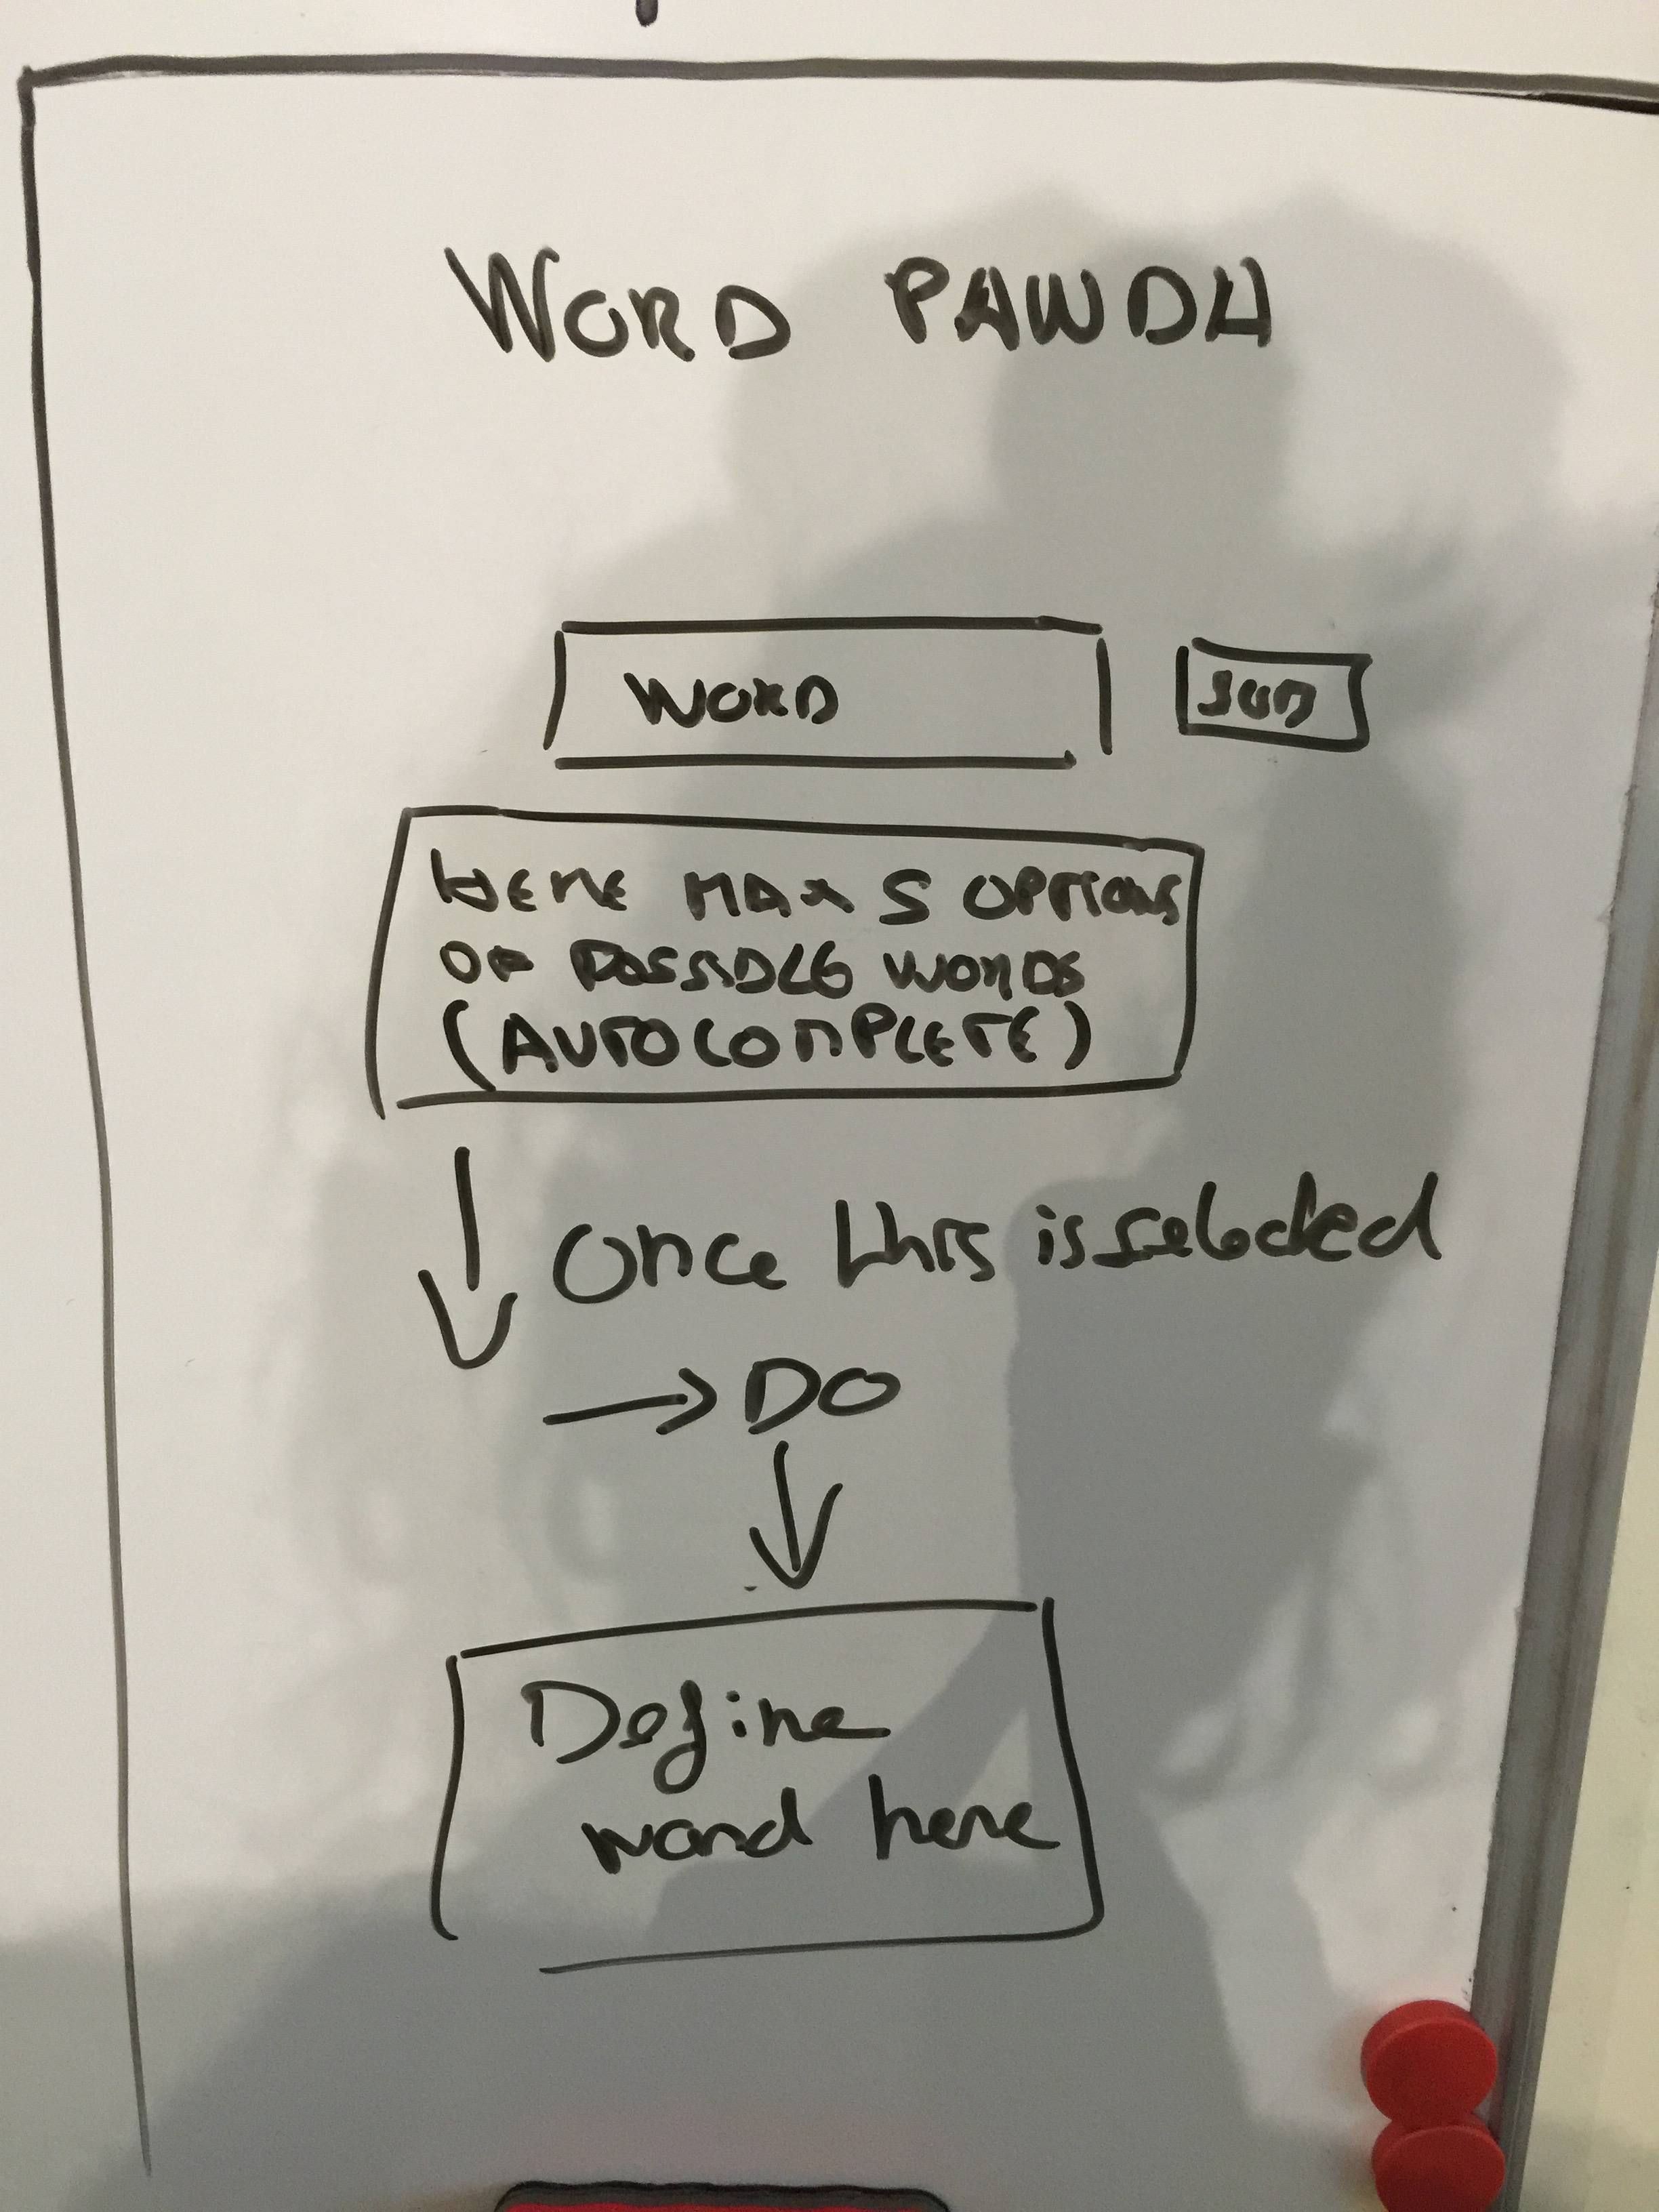 WORD PANDA
WORD SUB
HERE MAX 5 OPTIONS
OF POSSIBLE WORDS
(AUTOCOMPLETE)
Once this is selected
→ DO
Define
word here